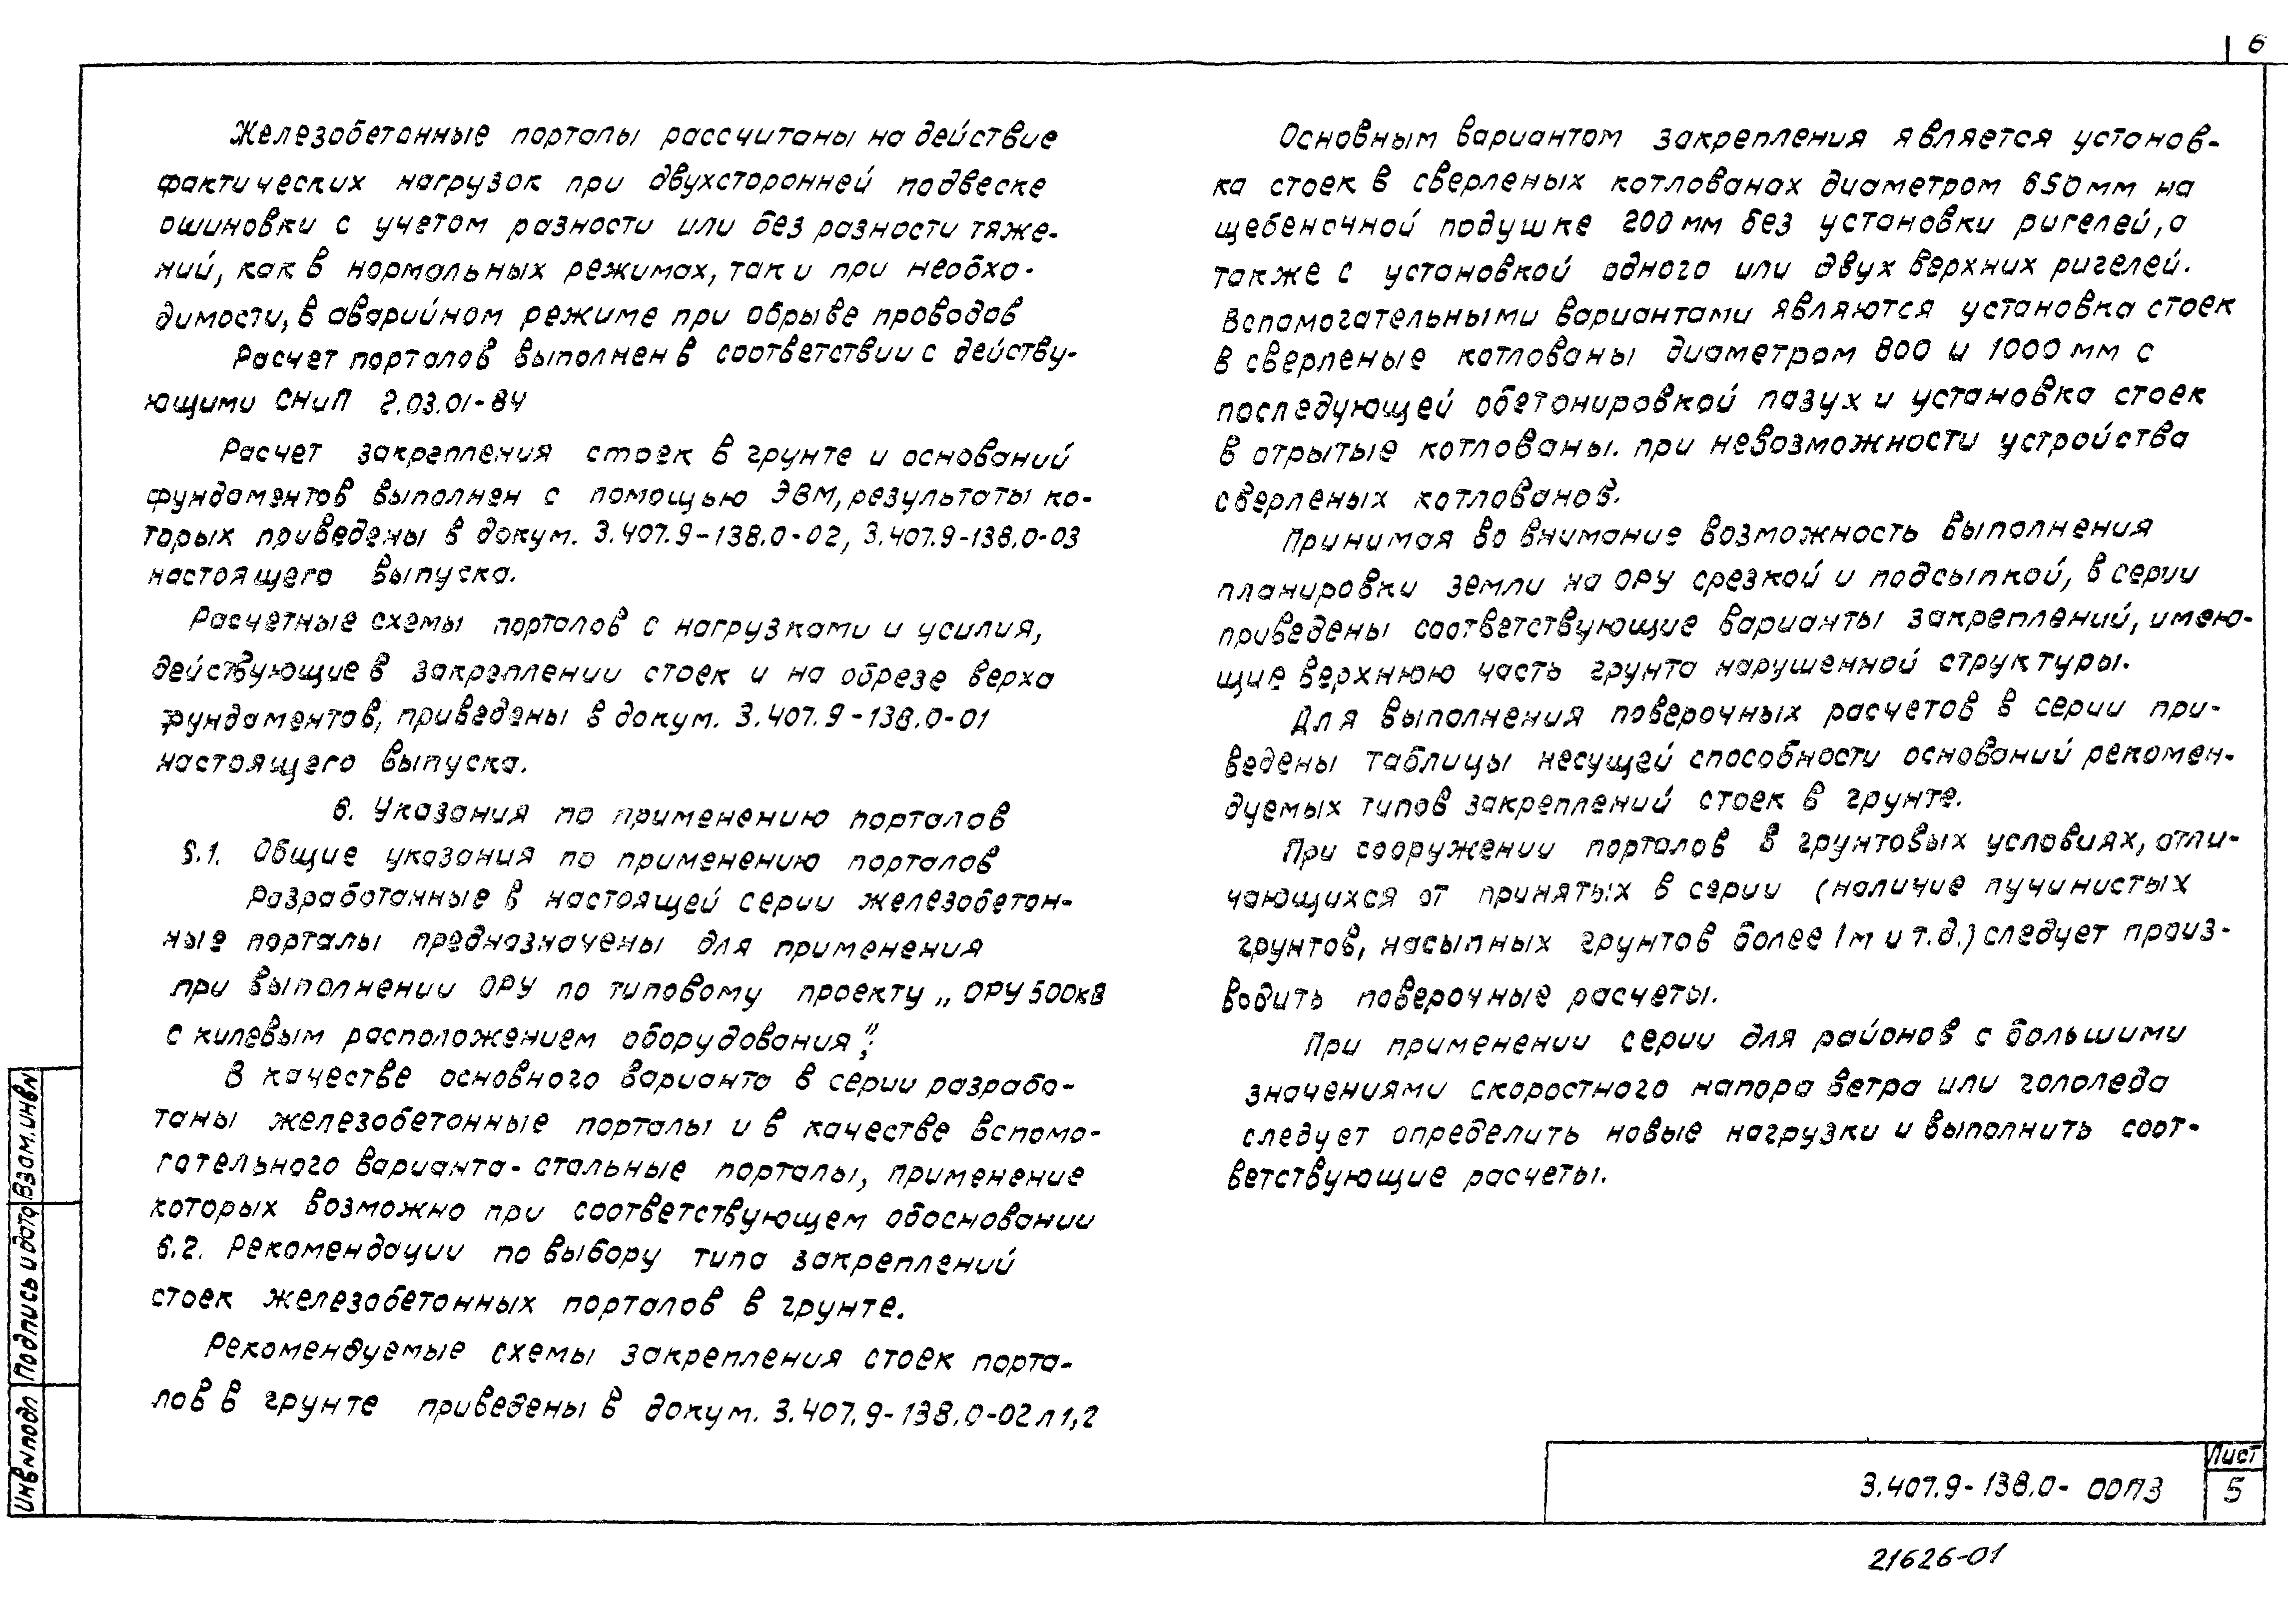 6
Железобетонные порталы рассчитаны на действие
фактических нагрузок при двухсторонней подвеске
ошиновки с учетом разности или без разности тяже-
ний, как в нормальных режимах, так и при необхо-
димости, в аварийном режиме при обрыве проводов
Расчет порталов выполнен в соответствии с действу-
ющими СНиП 2.03.01-84
Расчет закрепления стоек в грунте и оснований
фундаментов выполнен с помощью ЭВМ, результаты ко-
торых приведены в докум. 3.407.9-138.0-02, 3.407.9-138.0-03
настоящего выпуска.
Расчетные схемы порталов с нагрузками и усилия,
действующие в закреплении стоек и на обрезе верха
фундаментов, приведены в докум. 3.407.9-138.0-01
настоящего выпуска.
6. Указания по применению порталов
6.1. Общие указания по применению порталов
Разработанные в настоящей серии железобетон-
ные порталы предназначены для применения
при выполнении ОРУ по типовому проекту „ОРУ 500кВ
с килевым расположением оборудования“;
В качестве основного варианта в серии разрабо-
таны железобетонные порталы и в качестве вспомо-
гательного варианта - стальные порталы, применение
которых возможно при соответствующем обосновании
6.2. Рекомендации по выбору типа закреплений
стоек железобетонных порталов в грунте.
Рекомендуемые схемы закрепления стоек порта-
лов в грунте приведены в докум. 3.407.9-138.0-02 л 1,2
Основным вариантом закрепления является установ-
ка стоек в сверленых котлованах диаметром 650 мм на
щебеночной подушке 200 мм без установки ригелей, а
также с установкой одного или двух верхних ригелей.
Вспомогательными вариантами являются установка стоек
в сверленые котлованы диаметром 800 и 1000 мм с
последующей обетонировкой пазух и установка стоек
в отрытые котлованы. при невозможности устройства
сверленых котлованов.
Принимая во внимание возможность выполнения
планировки земли на ОРУ срезкой и подсыпкой, в серии
приведены соответствующие варианты закреплений, имею-
щие верхнюю часть грунта нарушенной структуры.
Для выполнения поверочных расчетов в серии при-
ведены таблицы несущей способности оснований рекомен-
дуемых типов закреплений стоек в грунте.
При сооружении порталов в грунтовых условиях, отли-
чающихся от принятых в серии (наличие пучинистых
грунтов, насыпных грунтов более 1м и т.д.) следует произ-
водить поверочные расчеты.
При применении серии для районов с большими
значениями скоростного напора ветра или гололеда
следует определить новые нагрузки и выполнить соот-
ветствующие расчеты.
Инв№подл Подпись и дата Взам.инв№
3.407.9-138.0-00ПЗ
Лист
5
21626-01